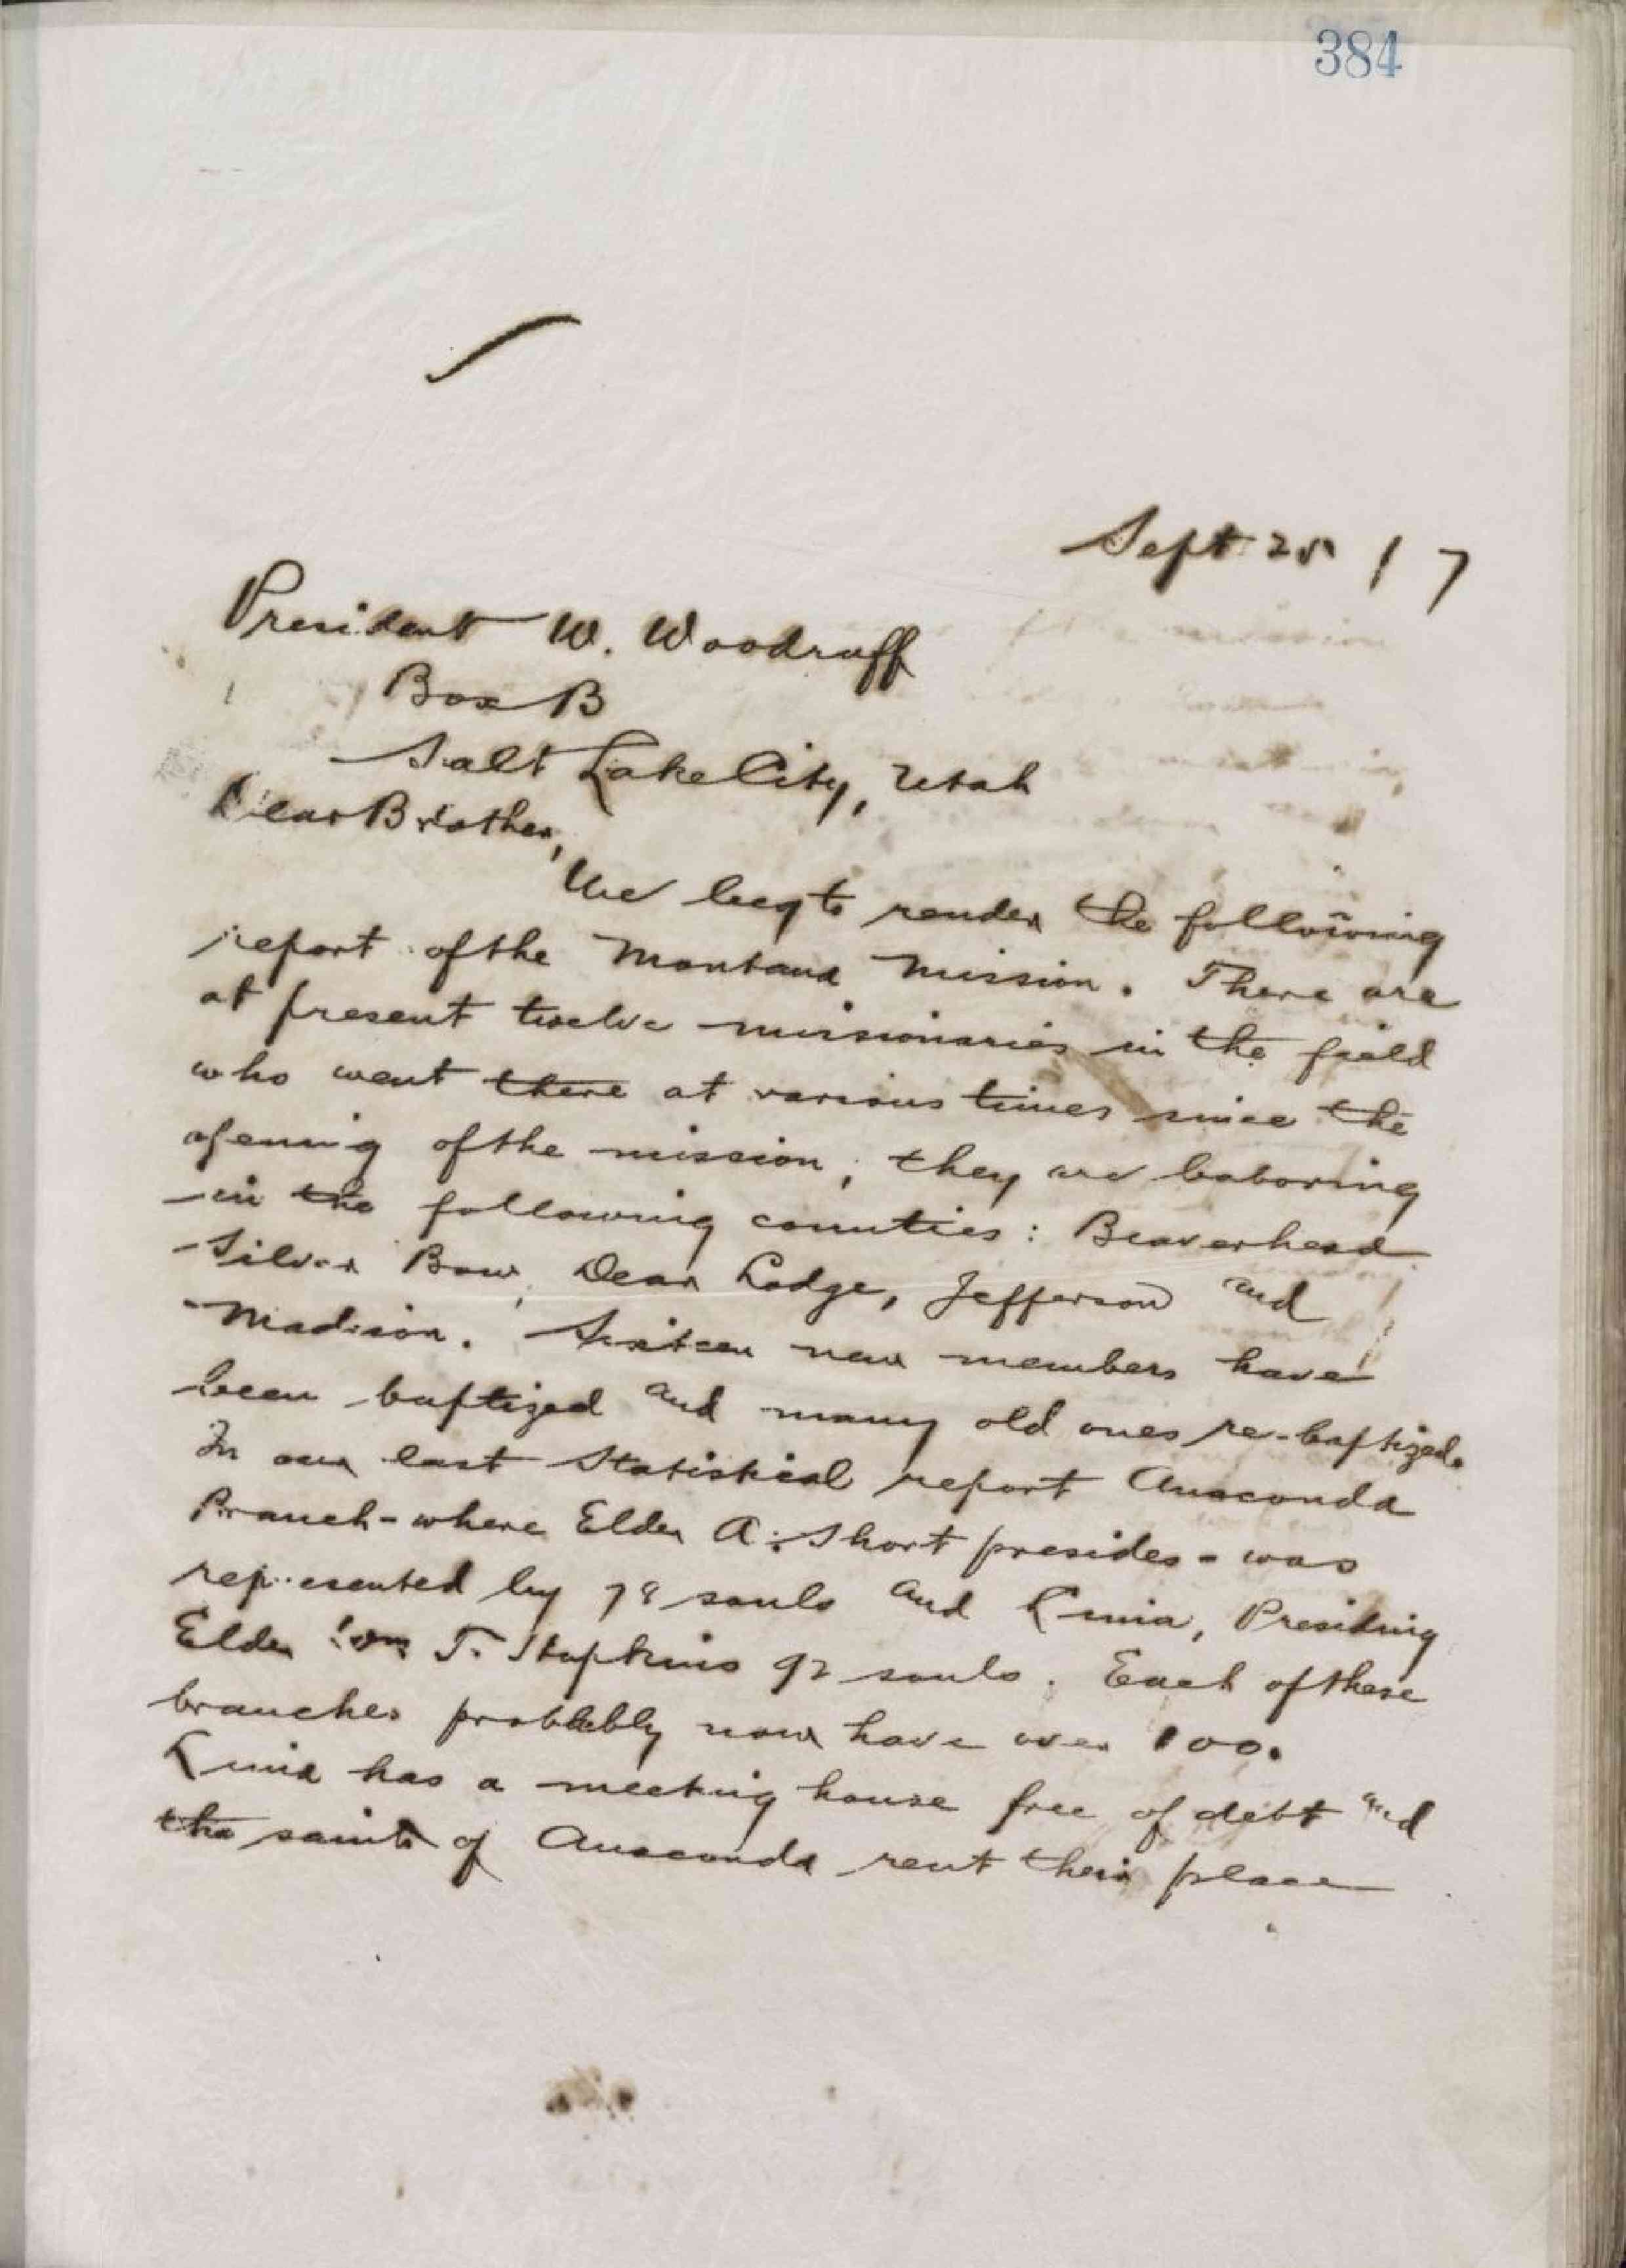 384
Sept 25 / 7
President W. Woodruff
Box B
Salt Lake City, Utah
Dear Brother,
We beg to render the following
report of the Montana Mission. There are
at present twelve missionaries in the field
who went there at various times since the
opening of the mission; they are laboring
in the following counties: Beaverhead
Silver Bow, Dear Lodge, Jefferson and
Madison. Sixteen new members have
been baptized and many old ones re-baptized.
In our last Statistical report Anaconda
Branch - where Elder A. Short presides - was
represented by 78 souls and Lima, Presiding
Elder Wm T. Stopkins 92 souls. Each of these
branches probably now have over 100.
Lima has a meeting house free of debt and
the saints of Anaconda rent their place